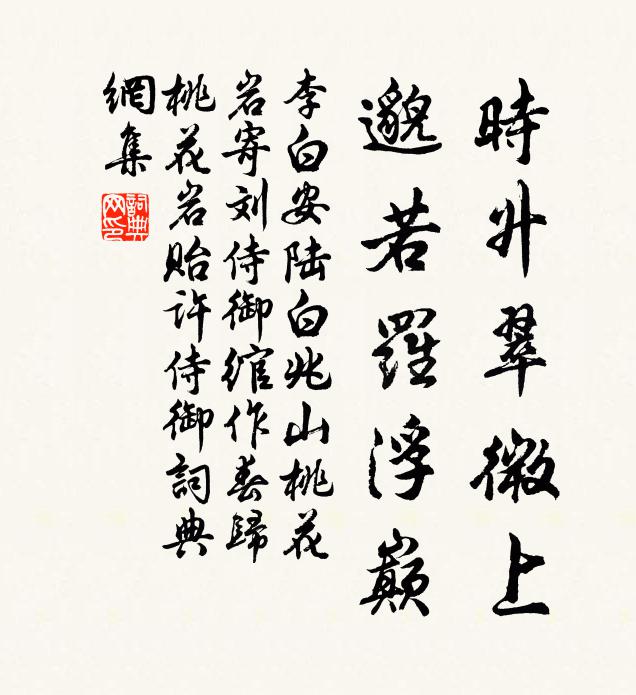 時升翠微上
邈若羅浮巔
李白安陸白兆山桃花
岩寄刘侍御綰作春歸
桃花岩貽許侍御詞典
網集
詞典
网印